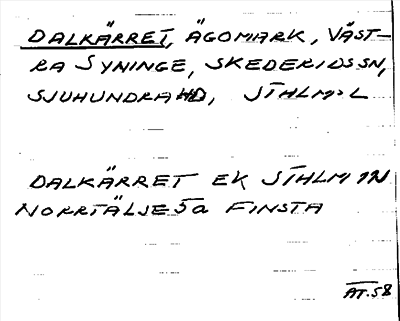 DALKÄRRET, ÄGOMARK, VÄST-
RA SYNINGE, SKEDERIDS SN,
SJUHUNDRA HD, STHLMS L
DALKÄRRET EK STHLM 1N
NORRTÄLJE 5a FINSTA
AT.58